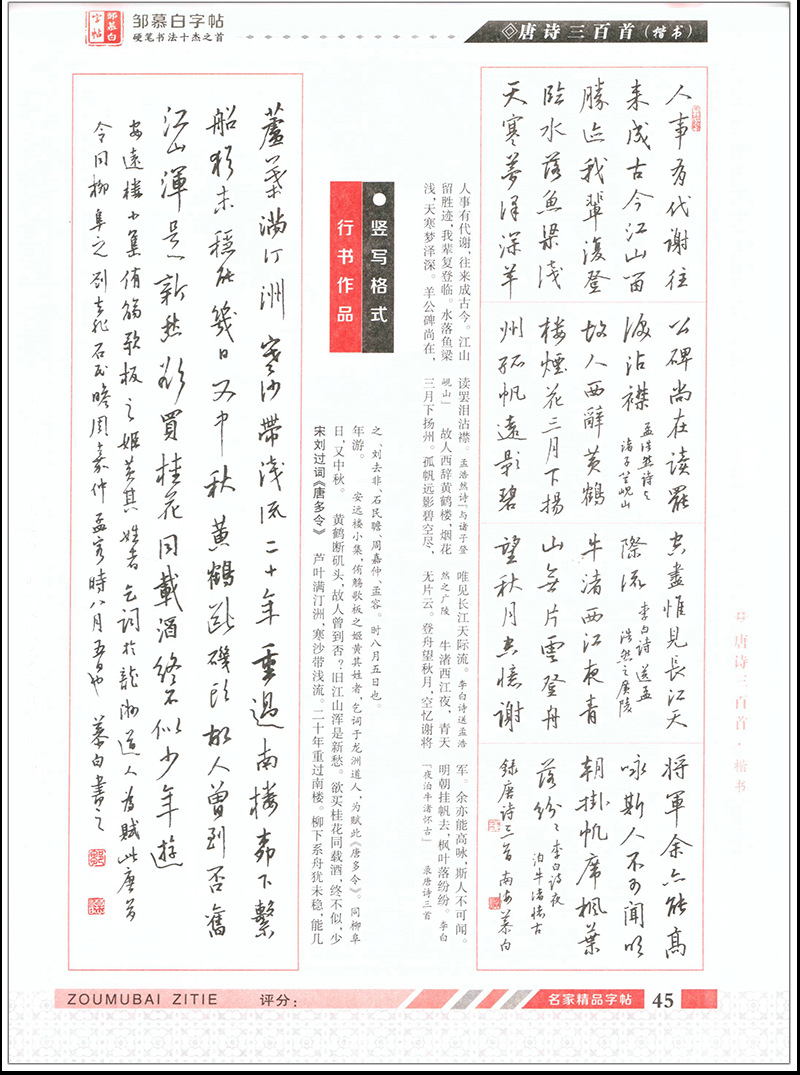 邹慕白
字帖
邹慕白字帖
硬笔书法十杰之首
唐诗三百首(楷书)
人事有代谢往
来成古今江山留
勝迹我輩復登
臨水落魚梁淺
天寒夢澤深羊
公碑尚在读罷
淚沾襟 孟浩然诗与
诸子登岘山
故人西辭黄鶴
楼煙花三月下揚
州孤帆遠影碧
空盡惟見長江天
際流 李白诗送孟
浩然之廣陵
牛渚西江夜青
山無片雲登舟
望秋月空憶谢
将軍余亦能高
咏斯人不可闻明
朝掛帆席楓葉
落纷々 李白诗夜
泊牛渚怀古
録唐诗三首 南海慕白
人事有代谢,往来成古今。江山
留胜迹,我辈复登临。水落鱼梁
浅,天寒梦泽深。羊公碑尚在,
读罢泪沾襟。孟浩然诗「与诸子登
岘山」 故人西辞黄鹤楼,烟花
三月下扬州。孤帆远影碧空尽,
唯见长江天际流。李白诗送孟浩
然之广陵 牛渚西江夜,青天
无片云。登舟望秋月,空忆谢将
军。余亦能高咏,斯人不可闻。
明朝挂帆去,枫叶落纷纷。李白
「夜泊牛渚怀古」 录唐诗三首
●竖写格式
行书作品
宋刘过词《唐多令》 芦叶满汀洲,寒沙带浅流。二十年重过南楼。柳下系舟犹未稳,能几
日,又中秋。 黄鹤断矶头,故人曾到否?旧江山浑是新愁。欲买桂花同载酒,终不似,少
年游。 安远楼小集,侑觞歌板之姬黄其姓者,乞词于龙洲道人,为赋此《唐多令》。同柳阜
之、刘去非、石民瞻、周嘉仲、孟容。时八月五日也。
蘆葉满汀洲寒沙帶浅流二十年重過南楼柳下繫
船猶未穩能幾日又中秋黄鶴斷磯頭故人曾到否舊
江山渾是新愁欲買桂花同載酒終不似少年遊
安遠楼小集侑觞歌板之姬黄其姓者乞词於龍洲道人為賦此唐多
令同柳阜之刘去非石民瞻周嘉仲孟容時八月五日也 慕白書之
唐诗三百首·楷书
ZOUMUBAI ZITIE
评分:
名家精品字帖
45